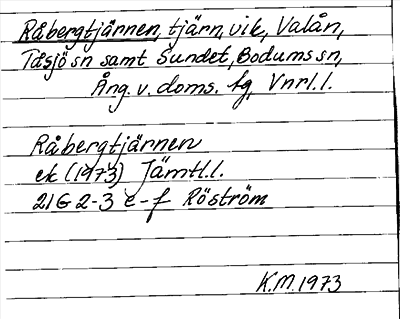 Råbergtjärnen, tjärn, vik, Valån,
Tåsjö sn samt Sundet, Bodums sn,
Ång. v. doms. fg, Vnrl.l.
Råbergtjärnen
ek (1973) Jämtl.l.
21G 2-3 e-f Röström
K.M. 1973